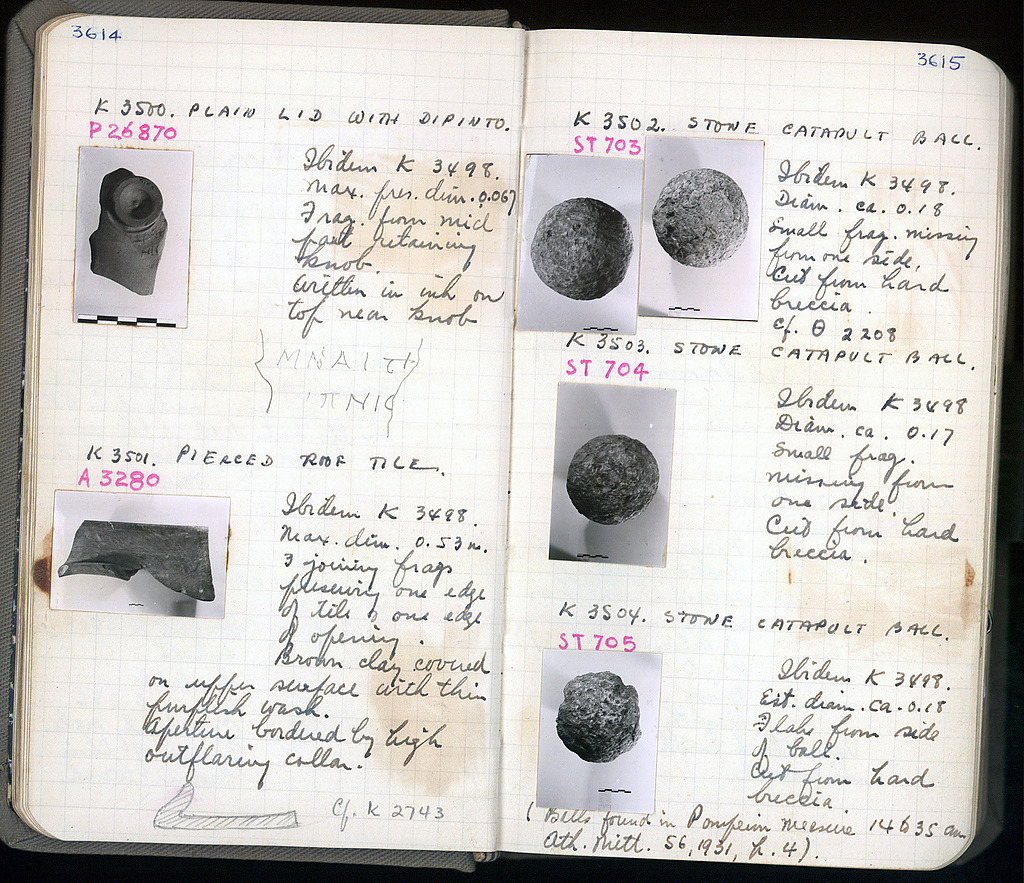 3614
K 3500. PLAIN LID WITH DIPINTO.
P 26870
Ibidem K 3498.
Max. pres. dim. 0.067
Frag. from mid
part retaining
knob.
Written in ink on
top near knob
ΜΝΑΙ
ΠΝΙ
K 3501. PIERCED ROOF TILE.
A 3280
Ibidem K 3498.
Max. dim. 0.53 m.
3 joining frags
preserving one edge
of tile & one edge
of opening.
Brown clay covered
on upper surface with thin
purplish wash.
Aperture bordered by high
outflaring collar.
Cf. K 2743
3615
K 3502. STONE CATAPULT BALL.
ST 703
Ibidem K 3498.
Diam. ca. 0.18
Small frag. missing
from one side.
Cut from hard
breccia.
Cf. Θ 2208
K 3503. STONE CATAPULT BALL.
ST 704
Ibidem K 3498
Diam. ca. 0.17
Small frag.
missing from
one side.
Cut from hard
breccia.
K 3504. STONE CATAPULT BALL.
ST 705
Ibidem K 3498.
Est. diam. ca. 0.18
Flake from side
of ball.
Cut from hard
breccia.
(Balls found in Pompeion measure 14 to 35 cm
Ath. Mitt. 56, 1931, p. 4).